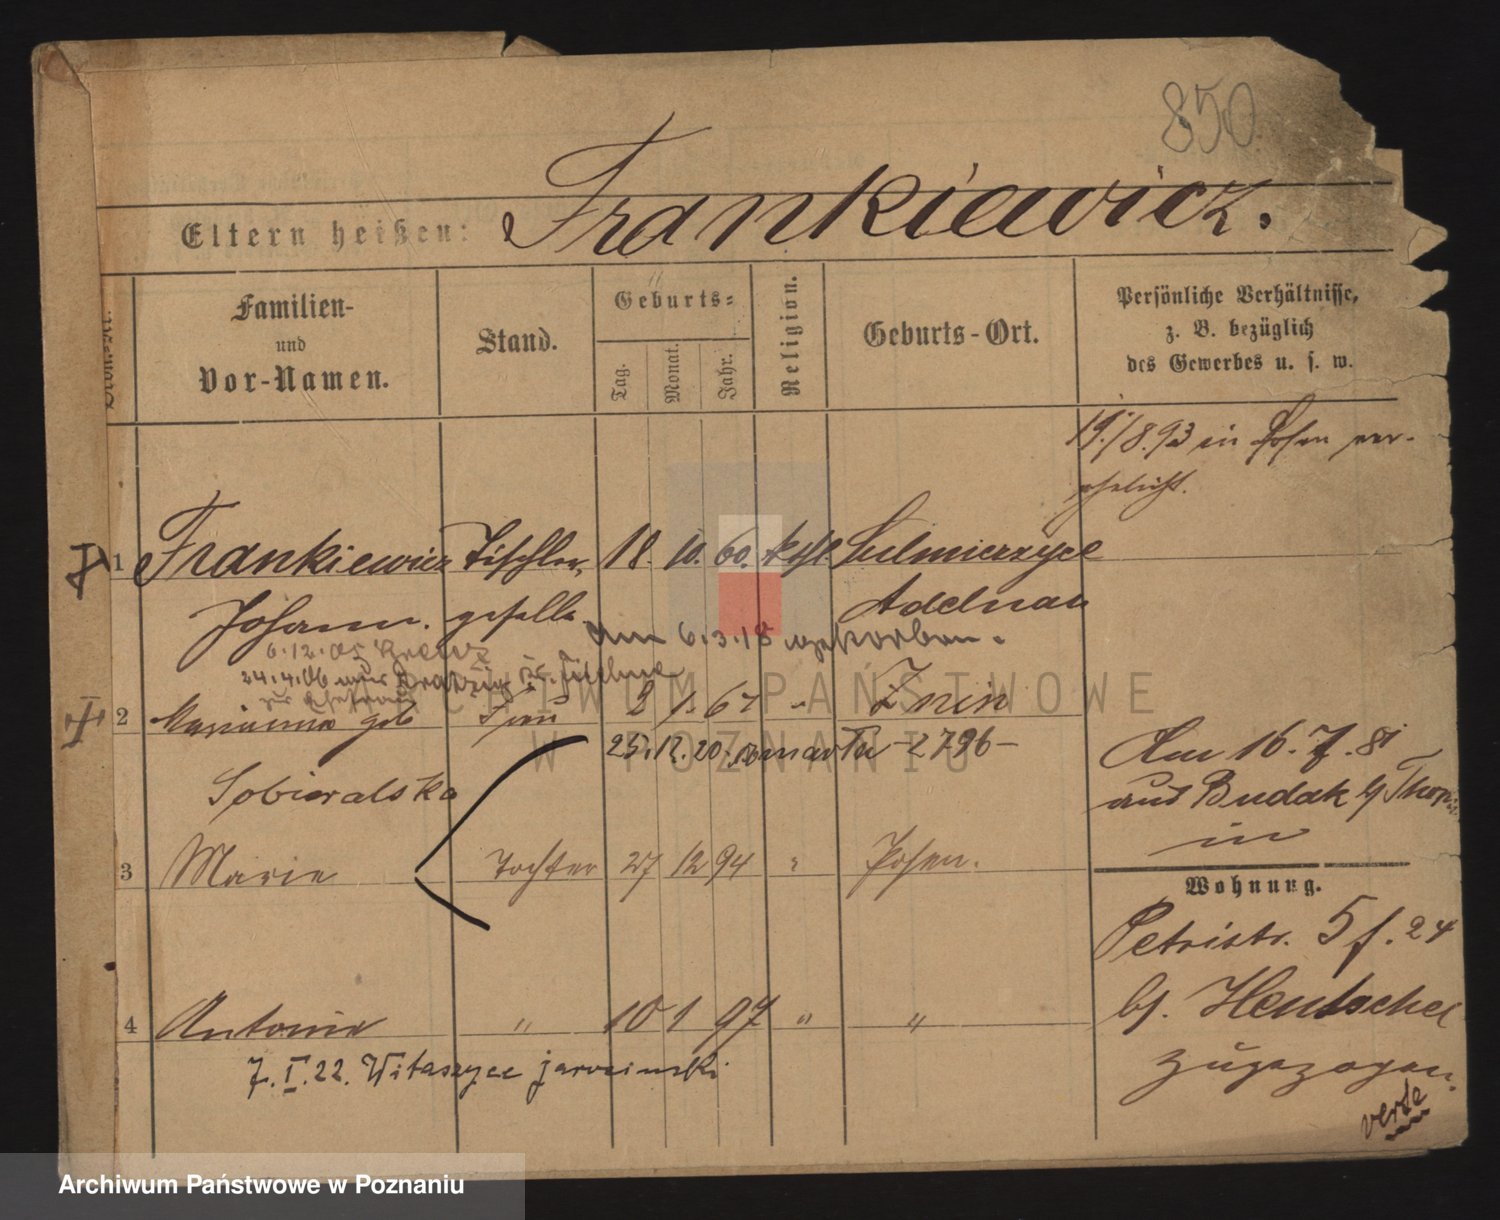 850
Frankiewicz.
Eltern heißen:
Familien-
und
Vor-Namen.
Stand.
Geburts-
Tag.
Monat.
Jahr.
Religion.
Geburts-Ort.
Persönliche Verhältnisse,
z. B. bezüglich
des Gewerbes u. s. w.
19./8.93 in Posen ver-
ehelicht.
1 Frankiewicz Tischler- 18. 10. 60. kath Sulmierzyce
Johann. geselle Adelnau
am 6.3.18 gestorben.
6.12.05
24.4.06 aus
2 Marianna geb Frau 2 1. 67 " Znin
25.12.20. zmarła -2796-
Sobieralska
Am 16.7.81
aus Budak b/ Thorn
in
3 Marie Tochter 27 12 94 " Posen.
Wohnung.
Petristr. 5 f. 24
bj. Hentschel
zugezogen.
4 Antonie " 10 1 97 " "
7.I.22. Witaszyce jarocinski
verte
ARCHIWUM PAŃSTWOWE
W POZNANIU
Archiwum Państwowe w Poznaniu